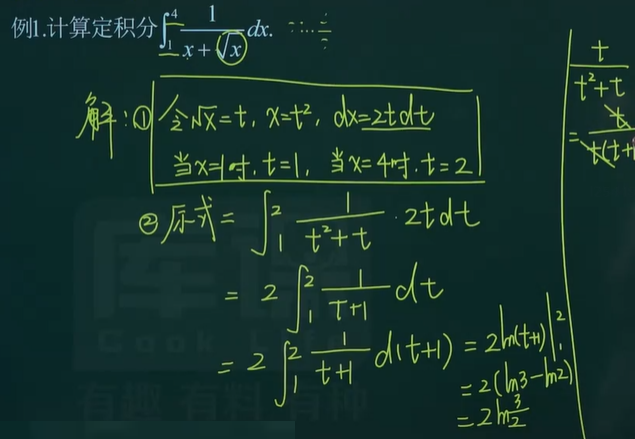 例1.计算定积分∫₁⁴ 1/(x+√x) dx.
解:① 令√x=t, x=t², dx=2tdt
当x=1时,t=1, 当x=4时,t=2
② 原式=∫₁² 1/(t²+t) · 2tdt
=2∫₁² 1/(t+1) dt
=2∫₁² 1/(t+1) d(t+1) =2ln(t+1)|₁²
=2(ln3-ln2)
=2ln 3/2
t/(t²+t)
=t/(t(t+1
库课
Cook Life
有趣 有料 有种